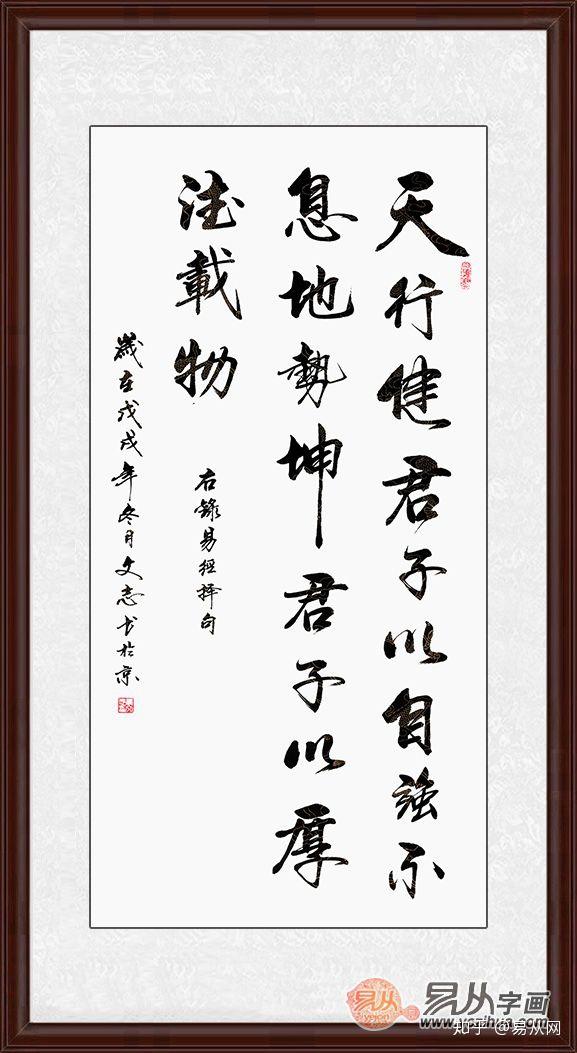 天行健君子以自強不
息地勢坤君子以厚
德載物
右錄易經擇句
歲在戊戌年冬月文志书於京
易从字画
yecon
www.yezihua.com
知乎 @易从网